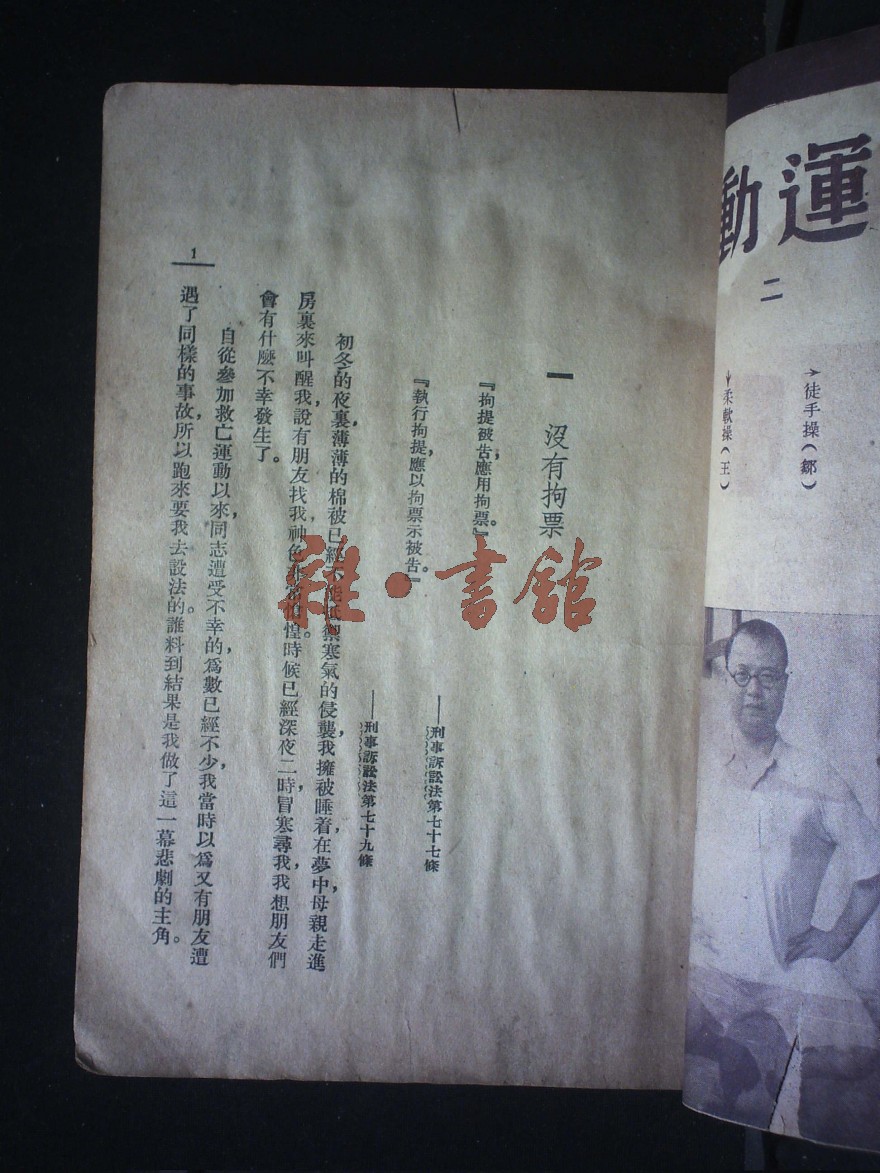 運動
二
徒手操(鄒)
柔軟操(王)
一　沒有拘票
『拘提被告,應用拘票。』
——刑事訴訟法第七十七條
『執行拘提,應以拘票示被告。』
——刑事訴訟法第七十九條
初冬的夜裏,薄薄的棉被已經不能抵禦寒氣的侵襲,我擁被睡着,在夢中,母親走進
房裏來叫醒我,說有朋友找我,神色非常惶。時候已經深夜二時,冒寒尋我,我想朋友們
會有什麼不幸發生了。
自從參加救亡運動以來,同志遭受不幸的,爲數已經不少,我當時以爲又有朋友遭
遇了同樣的事故,所以跑來要我去設法的。誰料到結果是我做了這一幕悲劇的主角。
1
雜·書館